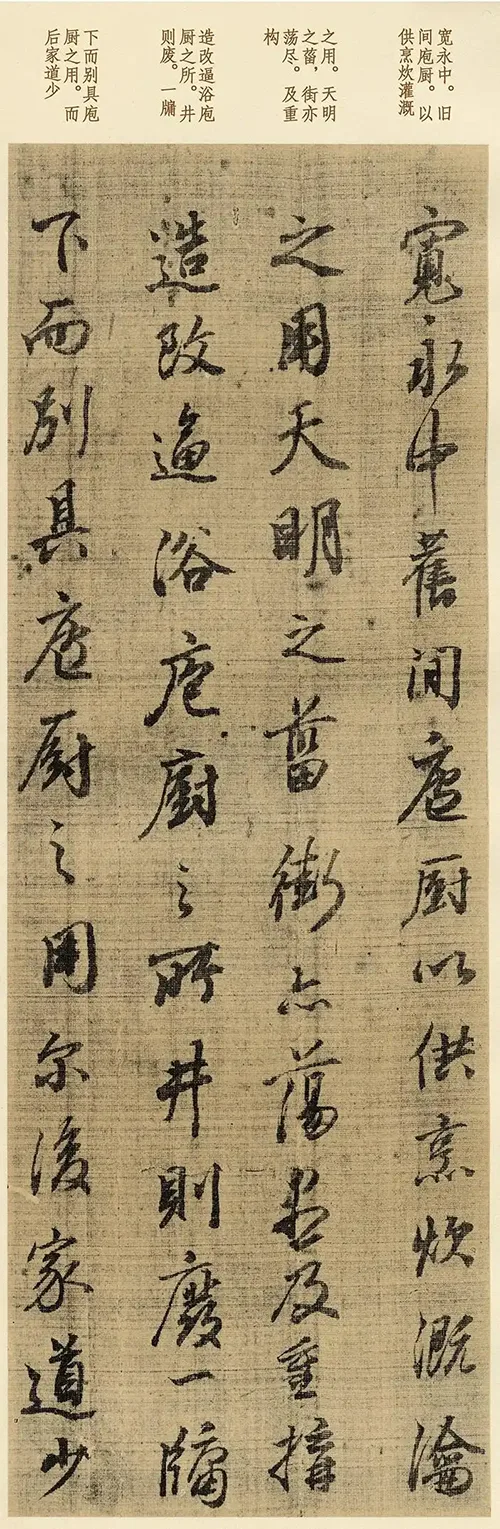 宽永中。旧
间庖厨。以
供烹炊灌溉
之用。天明
之菑，街亦
荡尽。及重
构
造改逼浴庖
厨之所。井
则废。一牖
下而别具庖
厨之用。而
后家道少
寬永中舊間庖厨以供烹炊溉瀹
之用天明之菑街亦蕩尽及重搆
造改逼浴庖廚之所井則廢一牖
下而別具庖厨之用尔後家道少